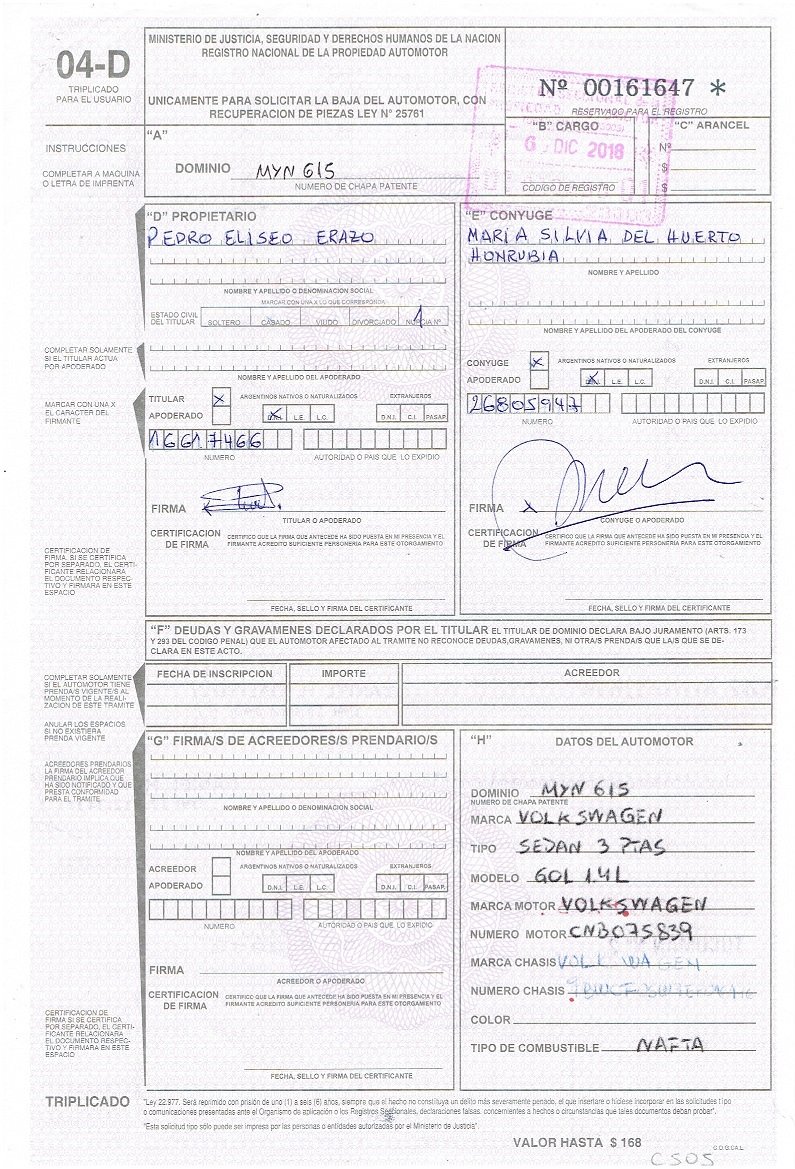 04-D
TRIPLICADO
PARA EL USUARIO
MINISTERIO DE JUSTICIA, SEGURIDAD Y DERECHOS HUMANOS DE LA NACION
REGISTRO NACIONAL DE LA PROPIEDAD AUTOMOTOR
UNICAMENTE PARA SOLICITAR LA BAJA DEL AUTOMOTOR, CON
RECUPERACION DE PIEZAS LEY N° 25761
Nº 00161647 *
RESERVADO PARA EL REGISTRO
"B" CARGO
6 DIC 2018
CODIGO DE REGISTRO
"C" ARANCEL
Nº
$
$
INSTRUCCIONES
COMPLETAR A MAQUINA
O LETRA DE IMPRENTA
"A"
DOMINIO MYN 615
NUMERO DE CHAPA PATENTE
"D" PROPIETARIO
PEDRO ELISEO ERAZO
NOMBRE Y APELLIDO O DENOMINACION SOCIAL
MARCAR CON UNA X LO QUE CORRESPONDA
ESTADO CIVIL
DEL TITULAR
SOLTERO CASADO VIUDO DIVORCIADO NUPCIA Nº 1
COMPLETAR SOLAMENTE
SI EL TITULAR ACTUA
POR APODERADO
NOMBRE Y APELLIDO DEL APODERADO
MARCAR CON UNA X
EL CARACTER DEL
FIRMANTE
TITULAR X
APODERADO
ARGENTINOS NATIVOS O NATURALIZADOS
D.N.I. X L.E. L.C.
EXTRANJEROS
D.N.I. C.I. PASAP.
16617466
NUMERO
AUTORIDAD O PAIS QUE LO EXPIDIO
FIRMA
TITULAR O APODERADO
CERTIFICACION
DE FIRMA
CERTIFICO QUE LA FIRMA QUE ANTECEDE HA SIDO PUESTA EN MI PRESENCIA Y EL
FIRMANTE ACREDITO SUFICIENTE PERSONERIA PARA ESTE OTORGAMIENTO
CERTIFICACION DE
FIRMA. SI SE CERTIFICA
POR SEPARADO, EL CERTI-
FICANTE RELACIONARA
EL DOCUMENTO RESPEC-
TIVO Y FIRMARA EN ESTE
ESPACIO
FECHA, SELLO Y FIRMA DEL CERTIFICANTE
"E" CONYUGE
MARIA SILVIA DEL HUERTO
HONRUBIA
NOMBRE Y APELLIDO
NOMBRE Y APELLIDO DEL APODERADO DEL CONYUGE
CONYUGE X
APODERADO
ARGENTINOS NATIVOS O NATURALIZADOS
D.N.I. X L.E. L.C.
EXTRANJEROS
D.N.I. C.I. PASAP.
26805947
NUMERO
AUTORIDAD O PAIS QUE LO EXPIDIO
FIRMA X
CONYUGE O APODERADO
CERTIFICACION
DE FIRMA
CERTIFICO QUE LA FIRMA QUE ANTECEDE HA SIDO PUESTA EN MI PRESENCIA Y EL
FIRMANTE ACREDITO SUFICIENTE PERSONERIA PARA ESTE OTORGAMIENTO
FECHA, SELLO Y FIRMA DEL CERTIFICANTE
"F" DEUDAS Y GRAVAMENES DECLARADOS POR EL TITULAR EL TITULAR DE DOMINIO DECLARA BAJO JURAMENTO (ARTS. 173
Y 293 DEL CODIGO PENAL) QUE EL AUTOMOTOR AFECTADO AL TRAMITE NO RECONOCE DEUDAS,GRAVAMENES, NI OTRA/S PRENDA/S QUE LA/S QUE SE DE-
CLARA EN ESTE ACTO.
COMPLETAR SOLAMENTE
SI EL AUTOMOTOR TIENE
PRENDA/S VIGENTE/S AL
MOMENTO DE LA REALI-
ZACION DE ESTE TRAMITE
ANULAR LOS ESPACIOS
SI NO EXISTIERA
PRENDA VIGENTE
FECHA DE INSCRIPCION
IMPORTE
ACREEDOR
"G" FIRMA/S DE ACREEDORES/S PRENDARIO/S
ACREEDORES PRENDARIOS
LA FIRMA DEL ACREEDOR
PRENDARIO IMPLICA QUE
HA SIDO NOTIFICADO Y QUE
PRESTA CONFORMIDAD
PARA EL TRAMITE.
NOMBRE Y APELLIDO O DENOMINACION SOCIAL
NOMBRE Y APELLIDO DEL APODERADO
ACREEDOR
APODERADO
ARGENTINOS NATIVOS O NATURALIZADOS
D.N.I. L.E. L.C.
EXTRANJEROS
D.N.I. C.I. PASAP.
NUMERO
AUTORIDAD O PAIS QUE LO EXPIDIO
FIRMA
ACREEDOR O APODERADO
CERTIFICACION
DE FIRMA
CERTIFICO QUE LA FIRMA QUE ANTECEDE HA SIDO PUESTA EN MI PRESENCIA Y EL
FIRMANTE ACREDITO SUFICIENTE PERSONERIA PARA ESTE OTORGAMIENTO
CERTIFICACION DE
FIRMA SI SE CERTIFICA
POR SEPARADO, EL CERTI-
FICANTE RELACIONARA
EL DOCUMENTO RESPEC-
TIVO Y FIRMARA EN ESTE
ESPACIO
FECHA, SELLO Y FIRMA DEL CERTIFICANTE
"H" DATOS DEL AUTOMOTOR
DOMINIO MYN 615
NUMERO DE CHAPA PATENTE
MARCA VOLKSWAGEN
TIPO SEDAN 3 PTAS
MODELO GOL 1.4L
MARCA MOTOR VOLKSWAGEN
NUMERO MOTOR CNB075839
MARCA CHASIS VOLKSWAGEN
NUMERO CHASIS
COLOR
TIPO DE COMBUSTIBLE NAFTA
TRIPLICADO
"Ley 22.977. Será reprimido con prisión de uno (1) a seis (6) años, siempre que el hecho no constituya un delito más severamente penado, el que insertare o hiciese incorporar en las solicitudes tipo
o comunicaciones presentadas ante el Organismo de aplicación o los Registros Seccionales, declaraciones falsas, concernientes a hechos o circunstancias que tales documentos deban probar".
"Esta solicitud tipo sólo puede ser impresa por las personas o entidades autorizadas por el Ministerio de Justicia".
VALOR HASTA $ 168
C505